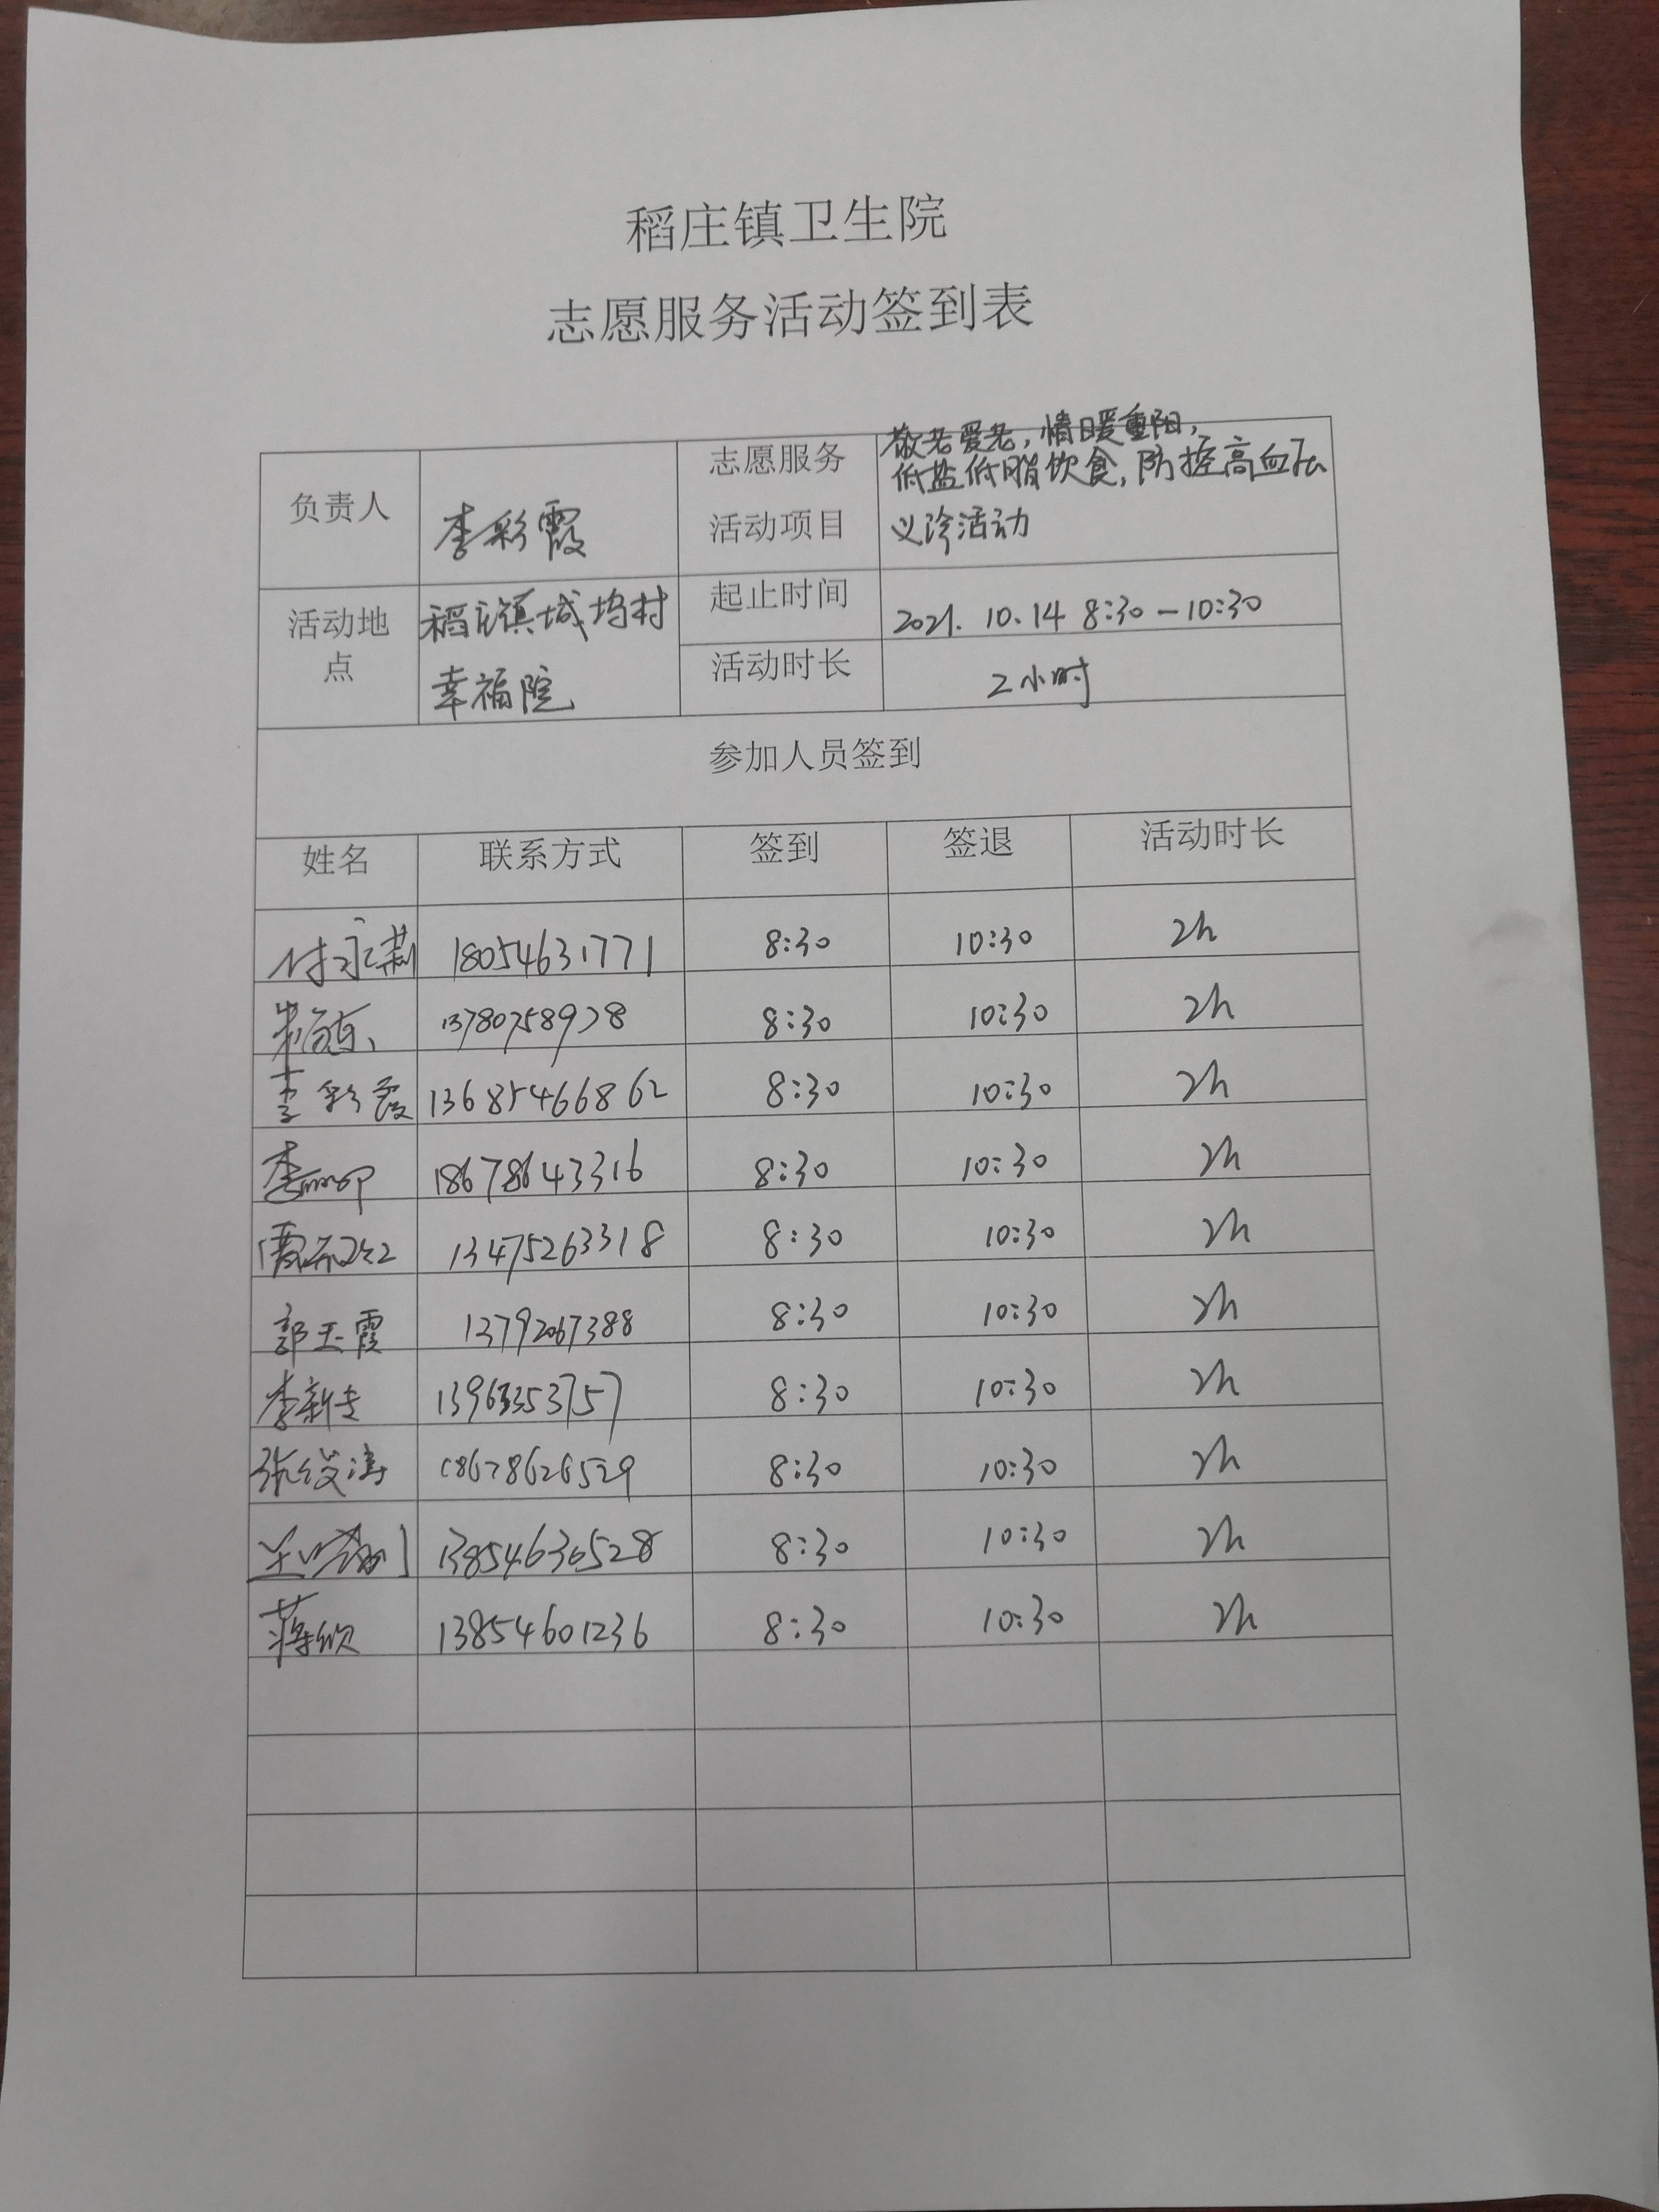 稻庄镇卫生院
志愿服务活动签到表
负责人 李彩霞 志愿服务活动项目 敬老爱老，情暖重阳，
低盐低脂饮食，防控高血压
义诊活动
活动地点 稻庄镇城坞村
幸福院
起止时间 2021. 10. 14 8:30 — 10:30
活动时长 2小时
参加人员签到
姓名 联系方式 签到 签退 活动时长
付永莉 18054631771 8:30 10:30 2h
13780758978 8:30 10:30 2h
李彩霞 13685466862 8:30 10:30 2h
18678643316 8:30 10:30 2h
13475263318 8:30 10:30 2h
郭玉霞 13792067388 8:30 10:30 2h
李新 8:30 10:30 2h
张俊涛 18678626529 8:30 10:30 2h
13854630528 8:30 10:30 2h
蒋欣 13854601236 8:30 10:30 2h